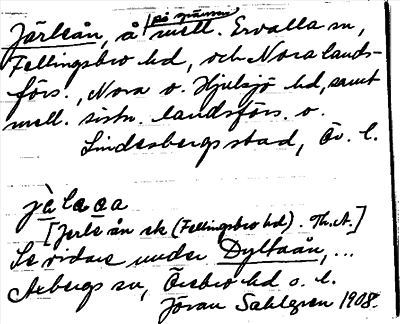 Järleån, å på gränsen mell. Ervalla sn,
Fellingsbro hd, och Nora lands-
förs., Nora o. Hjulsjö hd, samt
mell. sistn. landsförs. o.
Lindesbergs stad, Ör. l.
jà lɐ ɐa
[Jerle ån sk (Fellingsbro hd). Th. A.]
Se vidare under Dyltaån, ...
Axbergs sn, Örebro hd o. l.
Jöran Sahlgren 1908.